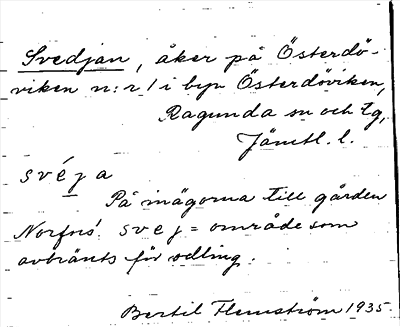 Svedjan, åker på Österdö-
viken n:r 1 i byn Österdöviken,
Ragunda sn och tg,
Jämtl. l.
svéja
På inägorna till gården
Norfors. svej = område som
avbränts för odling.
Bertil Flemström 1935.